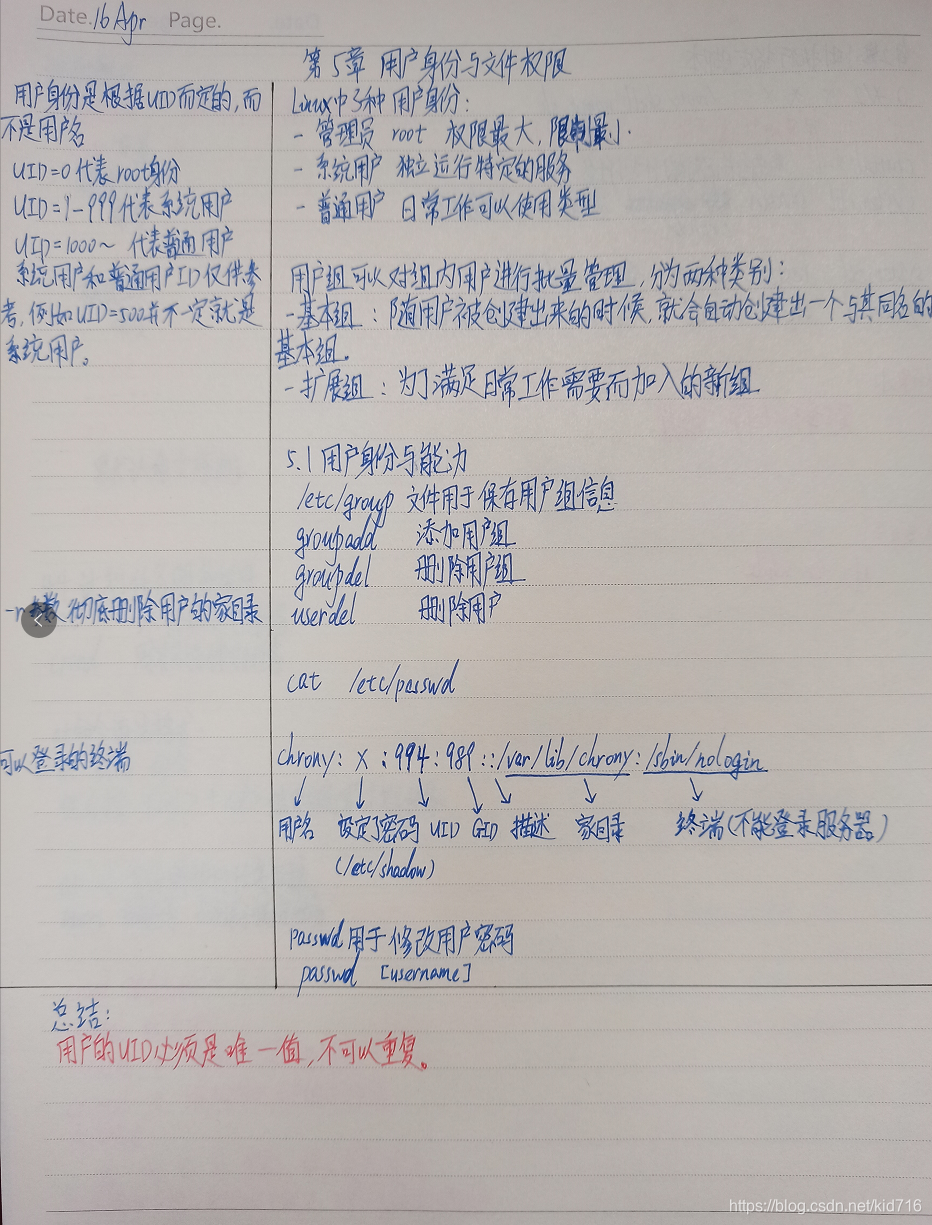 Date. 16 Apr Page.
第5章 用户身份与文件权限
用户身份是根据UID而定的,而
不是用户名
UID=0代表root身份
UID=1-999代表系统用户
UID=1000~ 代表普通用户
系统用户和普通用户ID仅供参
考,例如UID=500并不一定就是
系统用户。
-r参数 彻底删除用户的家目录
可以登录的终端
Linux中3种用户身份:
- 管理员 root 权限最大,限制最小.
- 系统用户 独立运行特定的服务
- 普通用户 日常工作可以使用类型
用户组可以对组内用户进行批量管理,分为两种类别:
-基本组:随用户被创建出来的时候,就会自动创建出一个与其同名的
基本组.
-扩展组:为了满足日常工作需要而加入的新组
5.1 用户身份与能力
/etc/group 文件用于保存用户组信息
groupadd 添加用户组
groupdel 删除用户组
userdel 删除用户
cat /etc/passwd
chrony: x :994:989::/var/lib/chrony:/sbin/nologin
用户名 设定了密码 UID GID 描述 家目录 终端(不能登录服务器)
(/etc/shadow)
passwd用于修改用户密码
passwd [username]
总结:
用户的UID必须是唯一值,不可以重复。
https://blog.csdn.net/kid716